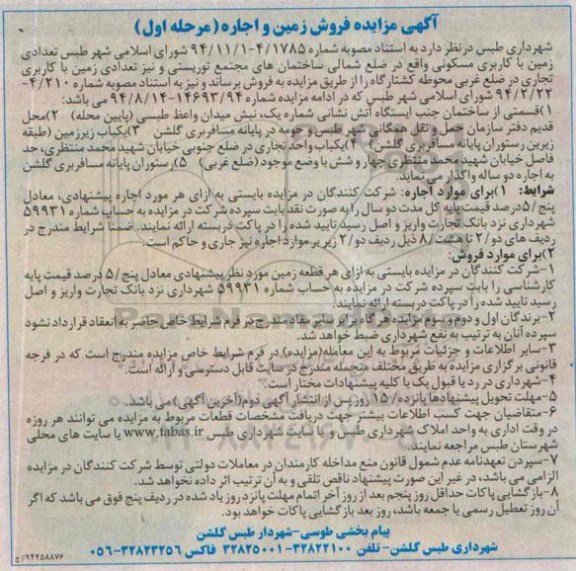 آگهی مزایده فروش زمین و اجاره (مرحله اول)
شهرداری طبس درنظر دارد به استناد مصوبه شماره ۴/۱۷۸۵-۹۴/۱۱/۱ شورای اسلامی شهر طبس تعدادی
زمین با کاربری مسکونی واقع در ضلع شمالی ساختمان های مجتمع توریستی و نیز تعدادی زمین با کاربری
تجاری در ضلع غربی محوطه کشتارگاه را از طریق مزایده به فروش برساند و نیز به استناد مصوبه شماره ۴/۲۱۰-
۹۴/۲/۲۲ شورای اسلامی شهر طبس که در ادامه مزایده شماره ۱۴۶۹۳/۹۴-۹۴/۸/۱۴ می باشد:
۱)قسمتی از ساختمان جنب ایستگاه آتش نشانی شماره یک، نبش میدان واعظ طبسی (پایین محله) ۲)محل
قدیم دفتر سازمان حمل و نقل همگانی شهر طبس وحومه در پایانه مسافربری گلشن ۳)یکباب زیرزمین (طبقه
زیرین رستوران پایانه مسافربری گلشن) ۴)یکباب واحد تجاری در ضلع جنوبی خیابان شهید محمد منتظری، حد
فاصل خیابان شهید محمد منتظری چهار و شش با وضع موجود (ضلع غربی) ۵)رستوران پایانه مسافربری گلشن
به اجاره دو ساله واگذار می نماید.
شرایط: ۱)برای موارد اجاره: شرکت کنندگان در مزایده بایستی به ازای هر مورد اجاره پیشنهادی، معادل
پنج/۵درصد قیمت پایه کل مدت دو سال را به صورت نقد بابت سپرده شرکت در مزایده به حساب شماره ۵۹۹۳۱
شهرداری نزد بانک تجارت واریز و اصل رسید تایید شده را در پاکت دربسته ارائه نمایند. ضمنا شرایط مندرج در
ردیف های دو/۲ تا هشت/۸ ذیل ردیف دو/۲ زیر بر موارد اجاره نیز جاری و حاکم است.
۲)برای موارد فروش:
۱-شرکت کنندگان در مزایده بایستی به ازای هر قطعه زمین مورد نظر پیشنهادی معادل پنج/۵ درصد قیمت پایه
کارشناسی را بابت سپرده شرکت در مزایده به حساب شماره ۵۹۹۳۱ شهرداری نزد بانک تجارت واریز و اصل
رسید تایید شده را در پاکت دربسته ارائه نمایند.
۲-برندگان اول و دوم و سوم مزایده هرگاه برابر سایر مفاد مندرج در فرم شرایط خاص حاضر به انعقاد قرارداد نشود
سپرده آنان به ترتیب به نفع شهرداری ضبط خواهد شد.
۳-سایر اطلاعات و جزئیات مربوط به این معامله(مزایده) در فرم شرایط خاص مزایده مندرج است که در فرجه
قانونی برگزاری مزایده به طریق مختلف منجمله مندرج در سایت قابل دسترسی و ارائه است.
۴-شهرداری در رد یا قبول یک یا کلیه پیشنهادات مختار است.
۵-مهلت تحویل پیشنهادها پانزده/۱۵ روز پس از انتشار آگهی دوم (آخرین آگهی) می باشد.
۶-متقاضیان جهت کسب اطلاعات بیشتر جهت دریافت مشخصات قطعات مربوط به مزایده می توانند هر روزه
در وقت اداری به واحد املاک شهرداری طبس و یا سایت شهرداری طبس www.tabas.ir یا سایت های محلی
شهرستان طبس مراجعه نمایند.
۷-سپردن تعهدنامه عدم شمول قانون منع مداخله کارمندان در معاملات دولتی توسط شرکت کنندگان در مزایده
الزامی می باشد، در غیر این صورت پیشنهاد ناقص تلقی و به آن ترتیب اثر داده نخواهد شد.
۸-بازگشایی پاکات حداقل روز پنجم بعد از روز آخر اتمام مهلت پانزده روز یاد شده در ردیف پنج فوق می باشد که اگر
آن روز تعطیل رسمی یا جمعه باشد، روز بعد بازگشایی پاکات خواهد بود.
پیام بخشی طوسی-شهردار طبس گلشن
شهرداری طبس گلشن-تلفن ۳۲۸۲۲۱۰۰-۳۲۸۲۵۰۰۱ فاکس ۳۲۸۲۳۲۵۶-۰۵۶
۹۴۴۵۸۸۷۶/ج